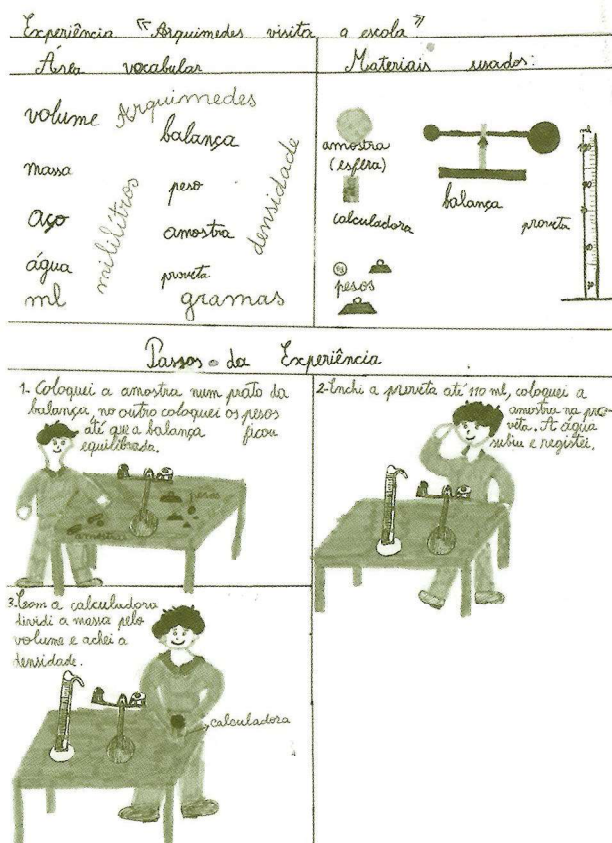 Experiência "Arquimedes visita a escola"
Área vocabular
volume
Arquimedes
balança
massa
mililitros
peso
densidade
aço
amostra
água
proveta
ml
gramas
Materiais usados:
amostra
(esfera)
calculadora
balança
proveta
ml
pesos
Passos da Experiência
1- Coloquei a amostra num prato da
balança, no outro coloquei os pesos
até que a balança ficou
equilibrada.
pesos
amostra
2- Enchi a proveta até 110 ml, coloquei a
amostra na pro-
veta. A água
subiu e registei.
3- Com a calculadora
dividi a massa pelo
volume e achei a
densidade.
calculadora